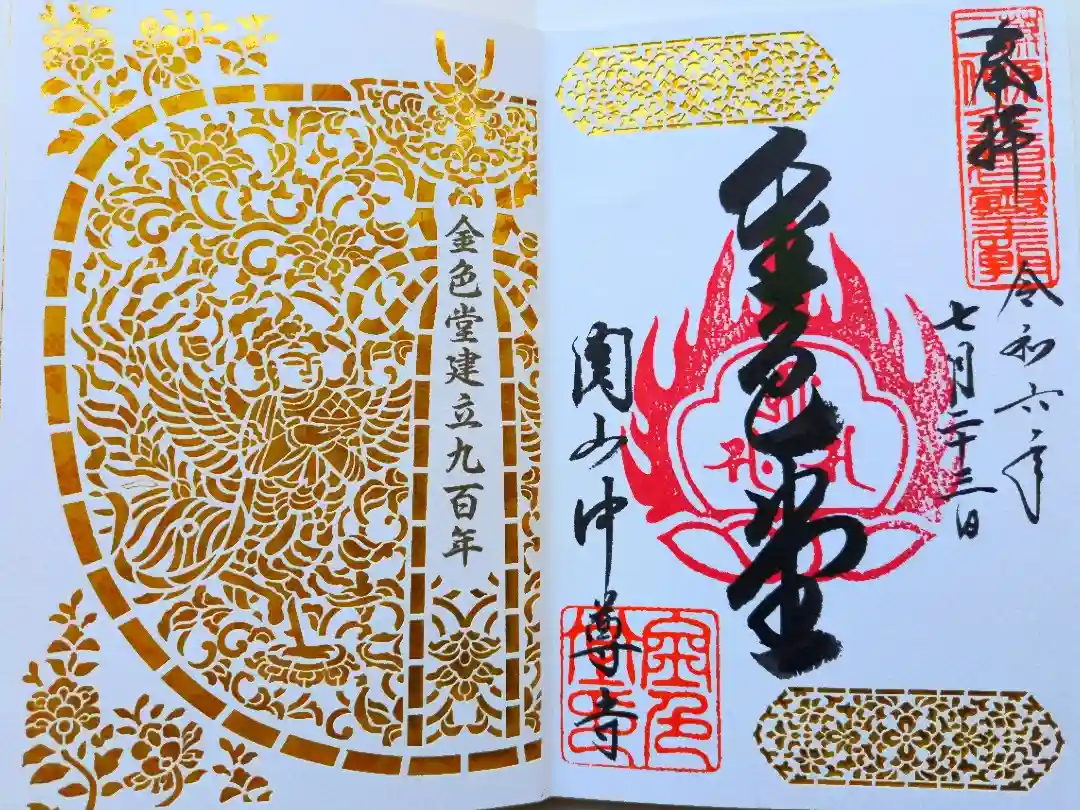 奉拝
令和六年
七月二十三日
金色堂
関山中尊寺
金色
堂印
金色堂建立九百年